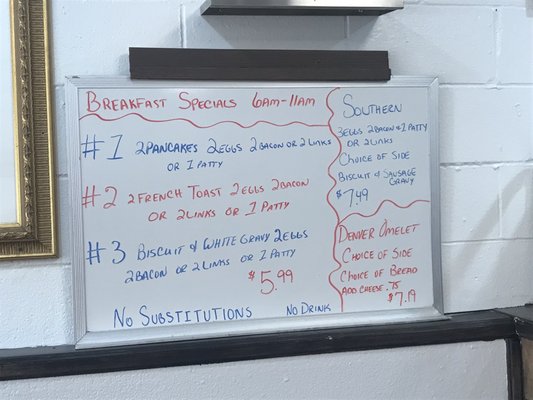 Breakfast Specials 6am-11am
#1 2 Pancakes 2 Eggs 2 Bacon or 2 Links
or 1 Patty
#2 2 French Toast 2 Eggs 2 Bacon
or 2 Links or 1 Patty
#3 Biscuit & White Gravy 2 Eggs
2 Bacon or 2 Links or 1 Patty
$5.99
No Substitutions No Drink
Southern
3 Eggs 2 Bacon & 1 Patty
or 2 Links
Choice of Side
Biscuit & Sausage
Gravy
$7.49
Denver Omelet
Choice of Side
Choice of Bread
Add Cheese .75
$7.19